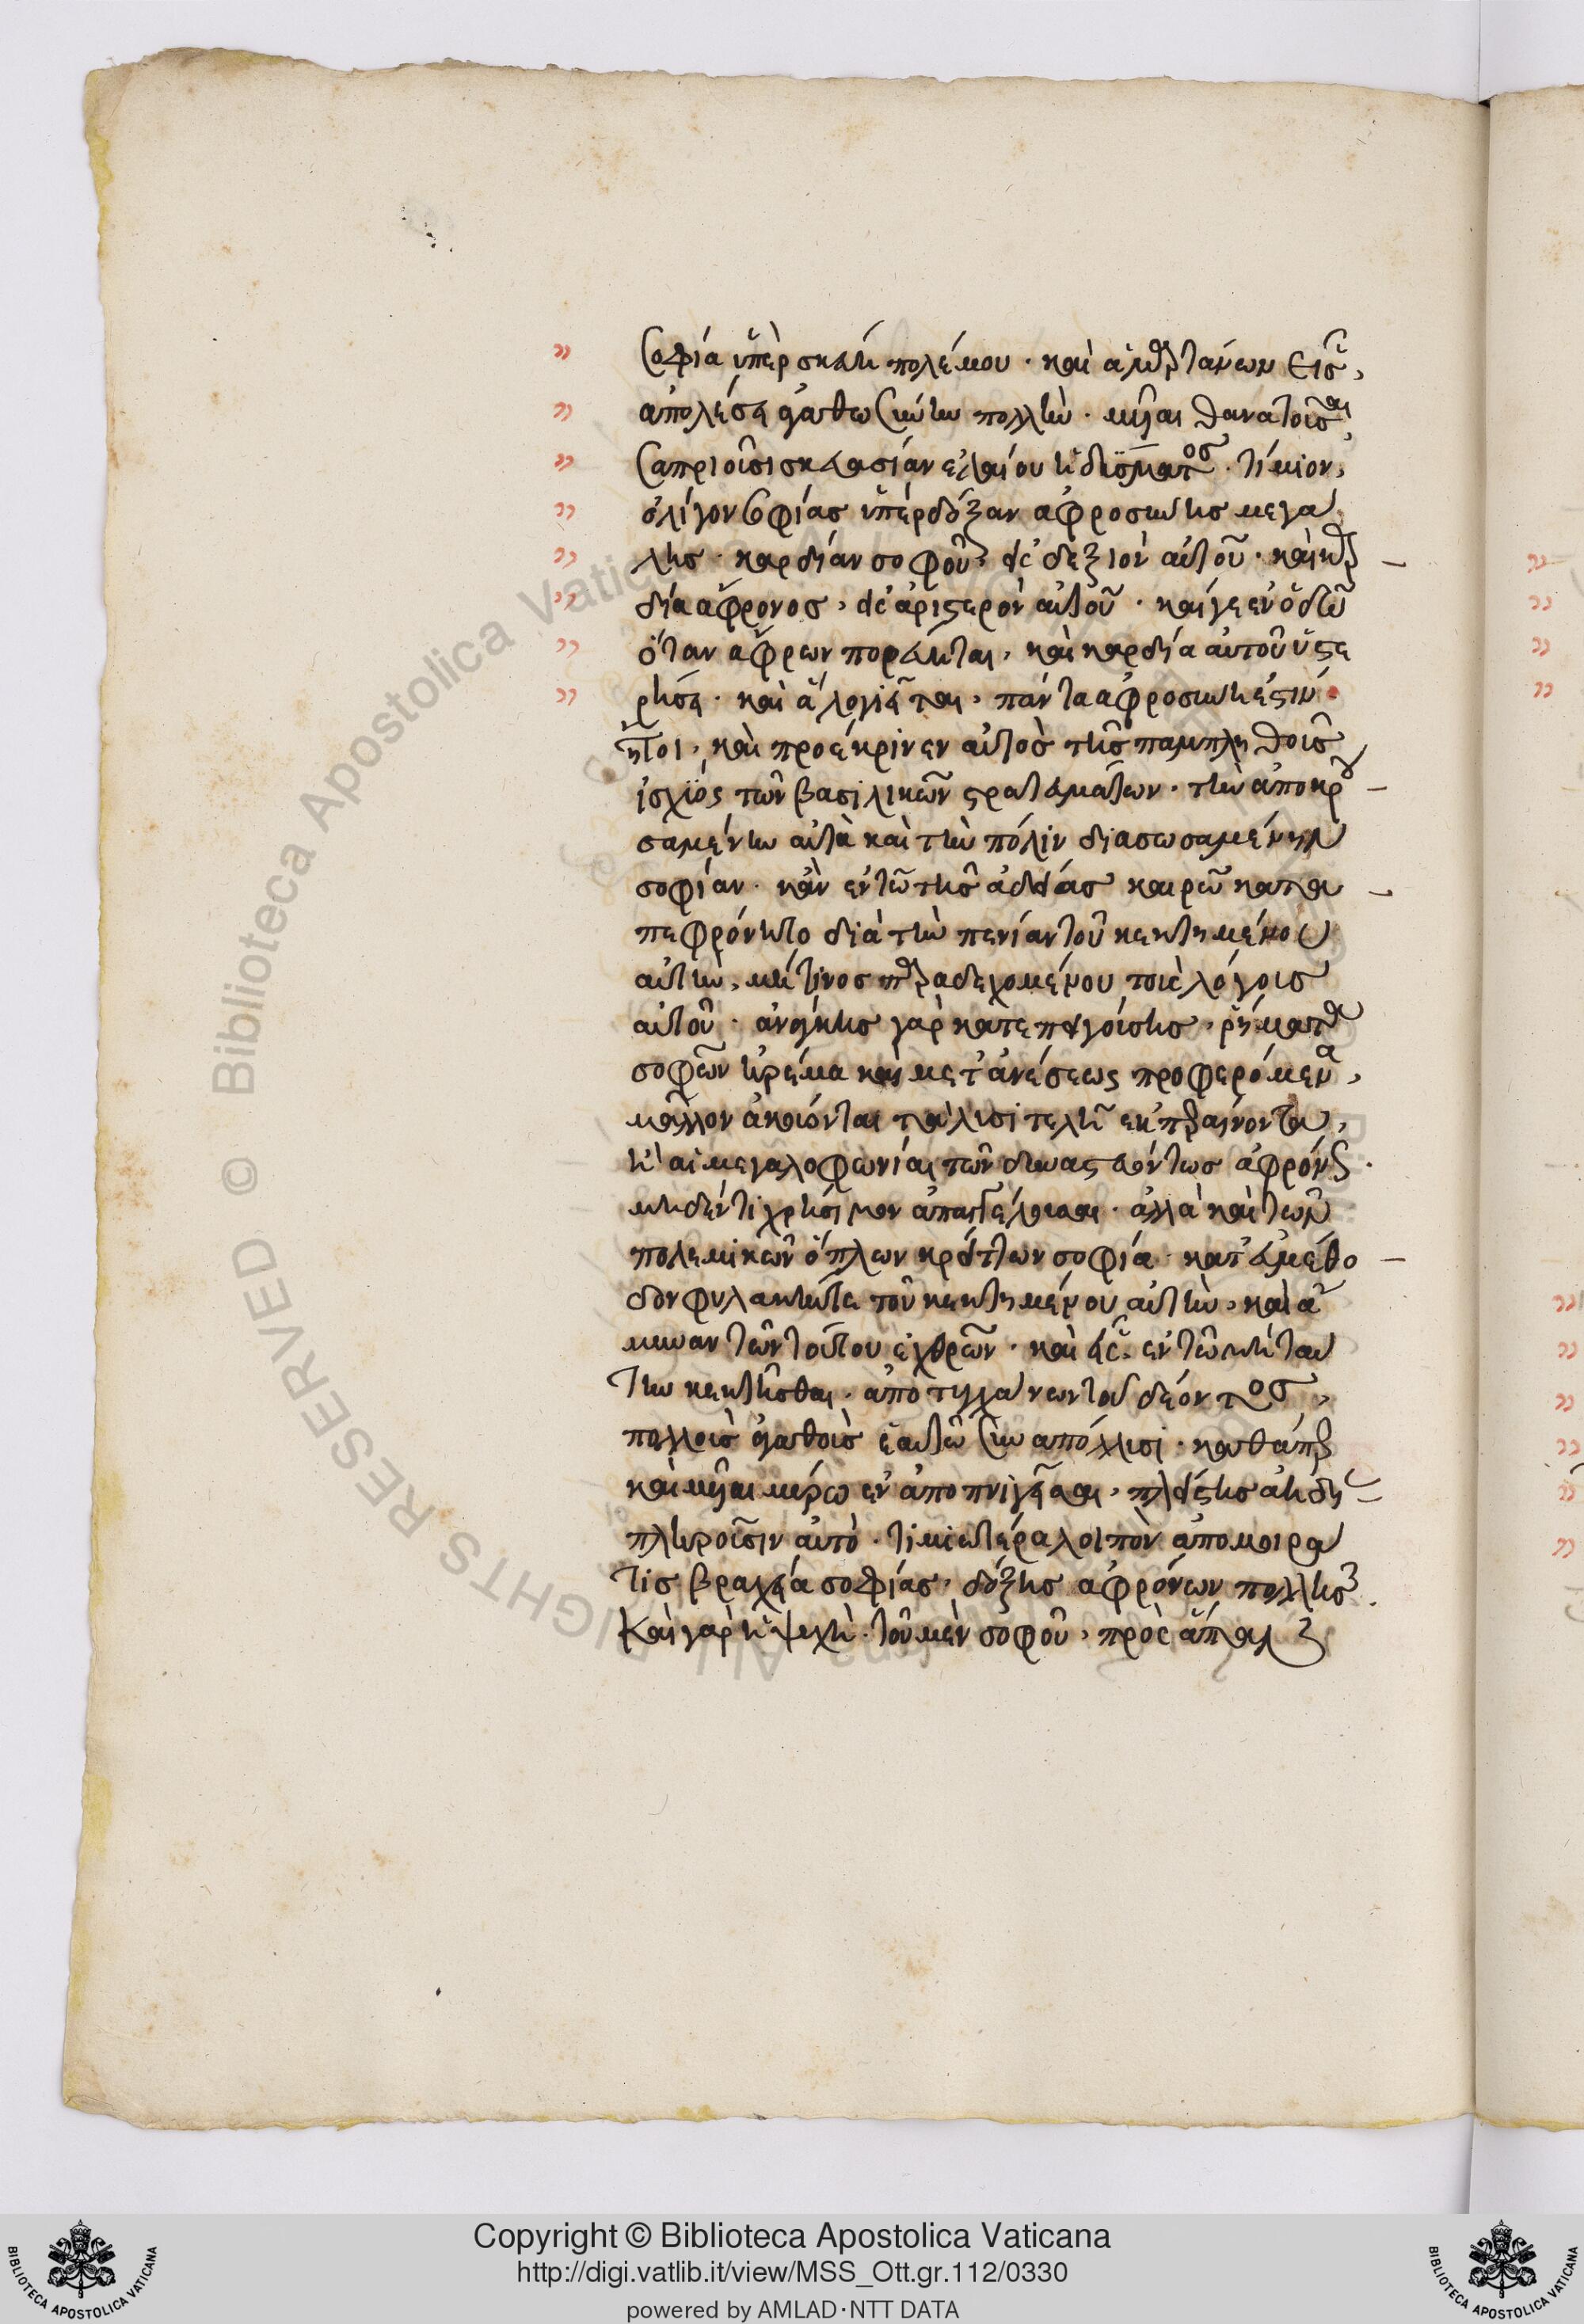 σοφία ὑπὲρ σκεύη πολέμου · καὶ ἁμαρτάνων εἷς,
ἀπολέσει ἀγαθωσύνην πολλὴν · μυῖαι θανατοῦσαι
σαπριοῦσι σκευασίαν ἐλαίου ἡδύσματος · τίμιον,
ὀλίγον σοφίας ὑπὲρ δόξαν ἀφροσύνης μεγά
λης · καρδίαν σοφοῦ, εἰς δεξιὸν αὐτοῦ · καὶ καρ
δία ἄφρονος, εἰς ἀριστερὸν αὐτοῦ · καί γε ἐν ὁδῷ
ὅταν ἄφρων πορεύηται, καὶ καρδία αὐτοῦ ὑστε
ρήσει · καὶ ἃ λογιεῖται, πάντα ἀφροσύνη ἐστίν ·
ἤτοι, καὶ προέκρινεν αὐτὸς τῆς παμπληθοῦς
ἰσχύος τῶν βασιλικῶν στρατευμάτων · τὴν ἀποκρου
σαμένην αὐτὰ καὶ τὴν πόλιν διασωσαμένην
σοφίαν · κἂν ἐν τῷ τῆς ἀδείας καιρῷ κατα
πεφρόνητο διὰ τὴν πενίαν τοῦ κεκτημένου
αὐτὴν, μή τινος παραδεχομένου τοὺς λόγους
αὐτοῦ · ἀνάγκης γὰρ κατεπειγούσης, ῥήματα
σοφῶν ἠρέμα καὶ μετ' ἀνέσεως προφερόμενα,
μᾶλλον ἀκούονται τὰ λυσιτελῆ ἐκπεραίνοντα,
ἢ αἱ μεγαλοφωνίαι τῶν δυναστευόντων ἀφρόνως ·
μηδέν τι χρήσιμον ἀπαγγέλουσαι · ἀλλὰ καὶ τῶν
πολεμικῶν ὅπλων κρείττων σοφία κατ' εὐμέθο
δον φυλακήν τε τοῦ κεκτημένου αὐτὴν, καὶ ἄ
μυναν τῶν τούτου ἐχθρῶν · καὶ εἷς ἐν τῷ μὴ ταύ
την κεκτῆσθαι, ἀποτυγχάνων τοῦ δέοντος,
πολλοῖς ἀγαθοῖς ἑαυτῷ συναπόλλυσι · καθάπερ
καὶ μυῖαι μύρῳ ἐναποπνιγεῖσαι, πλείστης ἀηδίας
πληροῦσιν αὐτό · τιμιωτέρα λοιπὸν ἀπόμοιρά
τις βραχεῖα σοφίας, δόξης ἀφρόνων πολλῆς ·
Καὶ γὰρ ἡ ψυχὴ τοῦ μὲν σοφοῦ, πρὸς
Copyright © Biblioteca Apostolica Vaticana
http://digi.vatlib.it/view/MSS_Ott.gr.112/0330
powered by AMLAD·NTT DATA